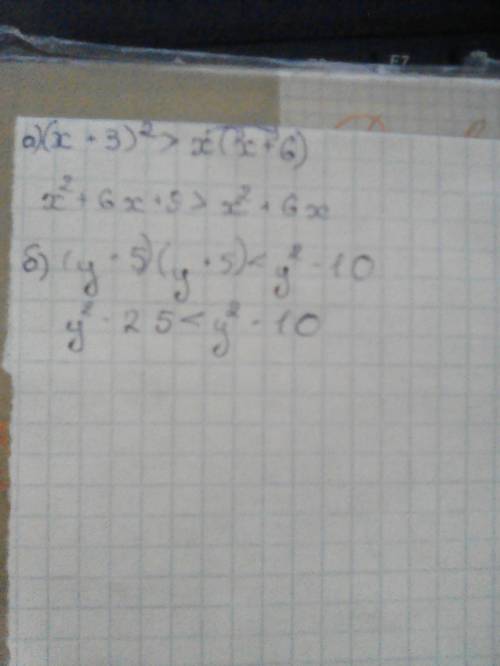 а)(x + 3)² > x(x + 6)
x² + 6x + 9 > x² + 6x
б) (y - 5)(y + 5) < y² - 10
y² - 25 < y² - 10